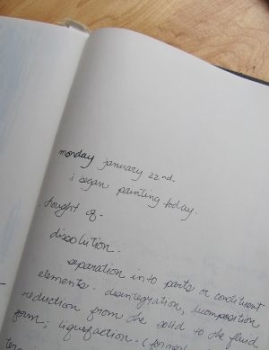 monday january 22nd.
i began painting today.
thought of -
dissolution.
separation into parts or constituent
elements. disintegration, decomposition
reduction from the solid to the fluid
form; liquefaction. (formed
ter-